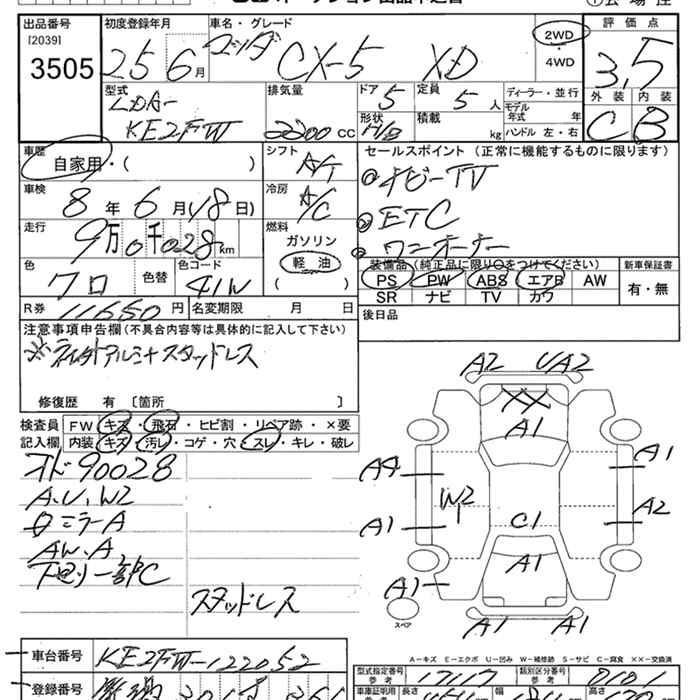 出品番号 [2039] 3505
初度登録年月 25 6月
車名・グレード マツダ CX-5 XD
2WD ・ 4WD
評価点 3.5
外装 C 内装 B
型式 LDA-KE2FW
排気量 2200 CC
ドア 5
形状 H/B
定員 5人
積載 kg
ディーラー・並行
モデル年式 年
ハンドル 左・右
車歴 自家用・( )
シフト A/T
セールスポイント (正常に機能するものに限ります)
①ナビーTV
②ETC
③ワンオーナー
車検 8年6月(18日)
冷房 A/C
走行 9万0千028km
燃料 ガソリン 軽油 ( )
色 クロ 色替 色コード 41W
装備品 (純正品に限り○をつけてください)
PS PW ABS エアB AW
SR ナビ TV カワ
新車保証書 有・無
R券 11650円 名変期限 月 日
後日品
注意事項申告欄 (不具合内容等は具体的に記入して下さい)
アルミナスタッドレス
修復歴 有 〔箇所 〕
検査員記入欄
FW キズ・飛石・ヒビ割・リペア跡・×要
内装 キズ・汚レ・コゲ・穴・スレ・キレ・破レ
オド90028
A.U.W2
ミラーA
AW.A
下廻リ一部C
スタッドレス
A2 UA2
XX
A1
A4 A1
W2 A2
A1 C1
A1
A1
A1 A1
スペア
A-キズ E-エクボ U-凹み W-補修跡 S-サビ C-腐食 ××-交換済
車台番号 KE2FW-122052
型式指定番号 参考 17117
類別区分番号 参考
登録番号
長さ 幅 高さ